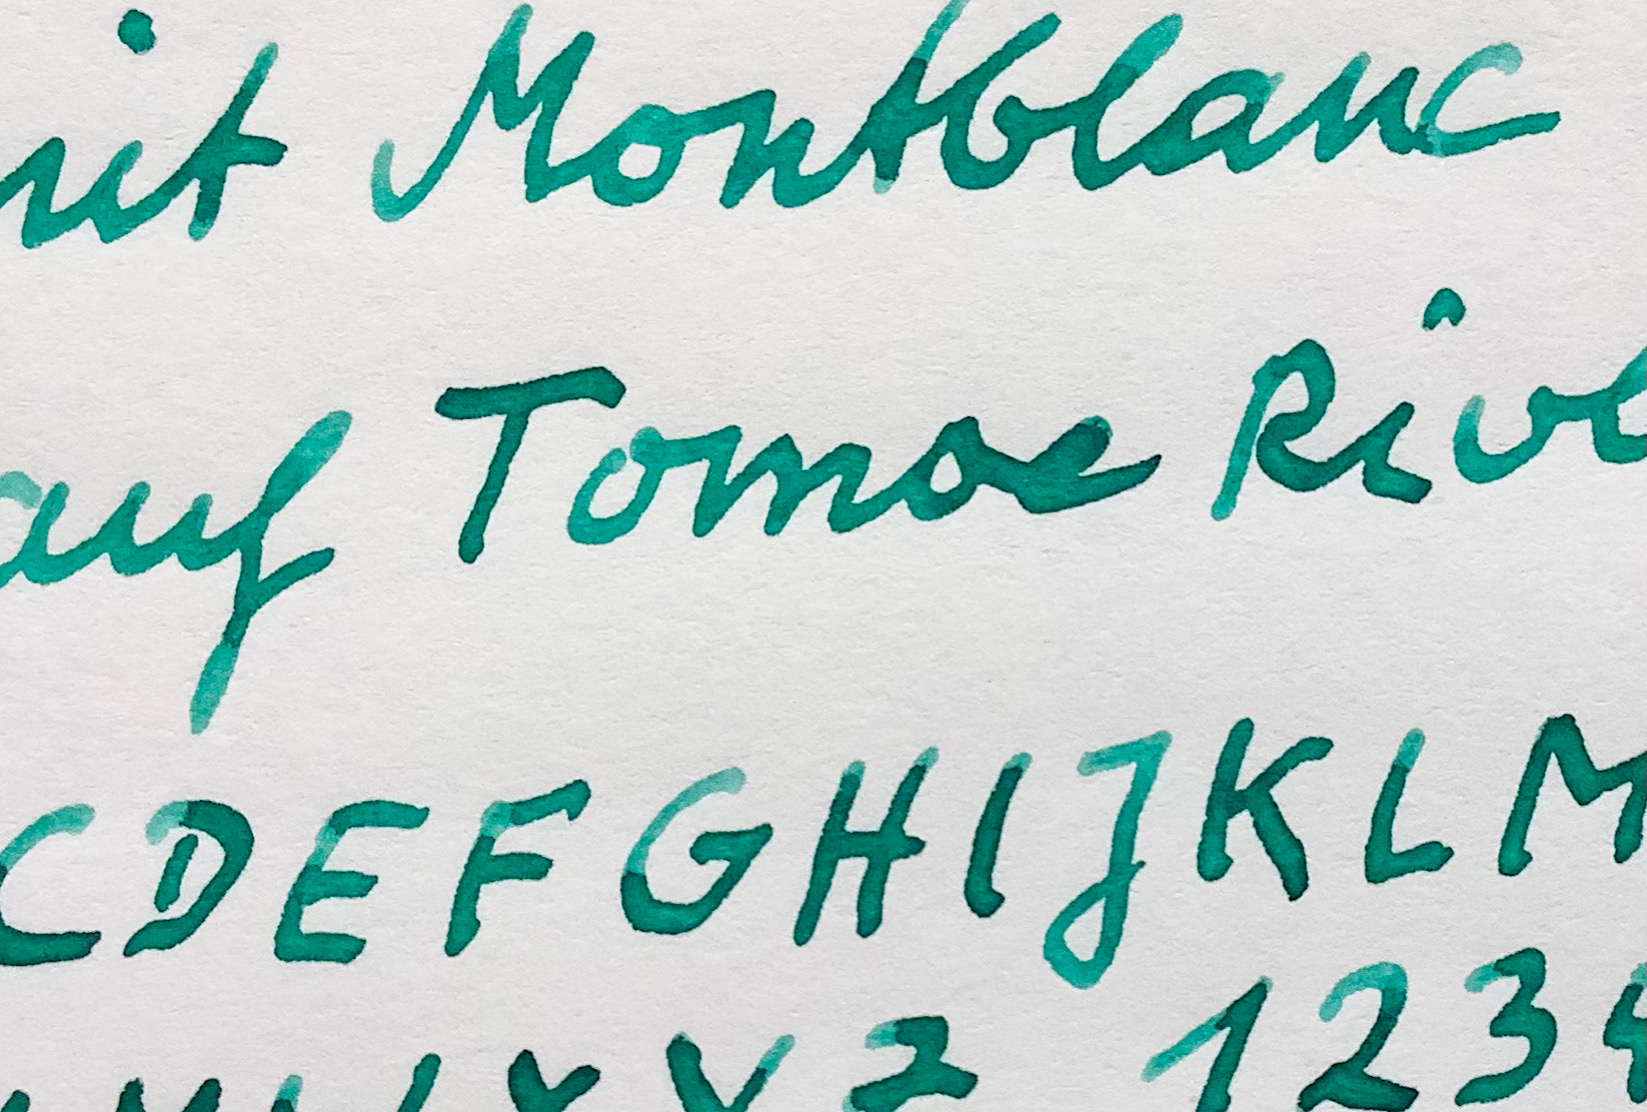 mit Montblanc
auf Tomoe River
C D E F G H I J K L M
X Y Z 1 2 3 4